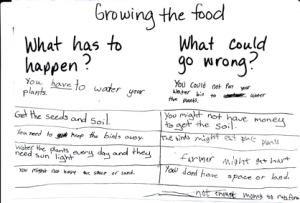 Growing the food
What has to
happen?
You have to water your
plants.
Get the seeds and soil.
You need to keep the birds away.
Water the plants every day and they
need sun light
You might not have the space or land.
What could
go wrong?
You could not for your
water to water
the plants.
You might not have money
to get the soil.
The birds might eat the plants
farmer might get hurt
You dont have space or land.
not enough